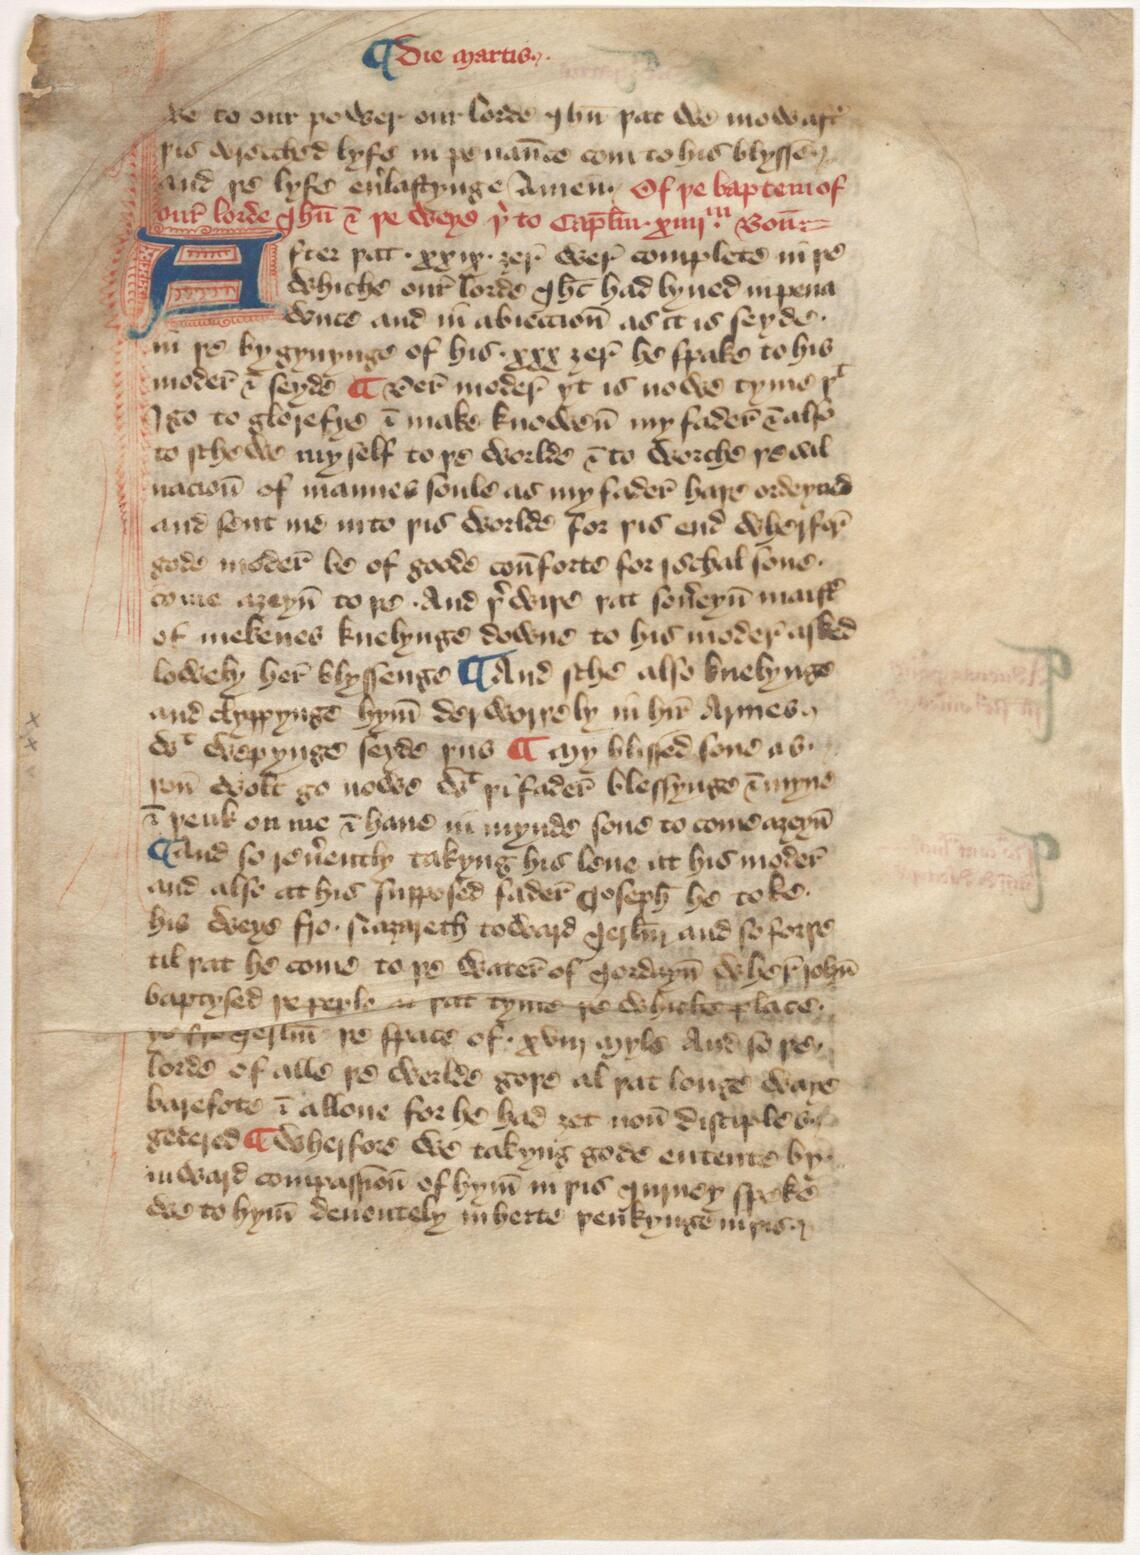 ¶ Die Martis
we to our power our lorde Ihū þat we mow aftʳ
þis wrecched lyfe in penaūce com to his blysse
and þe lyfe euʼlastynge Amen. Of þe baptem of
our̄ lorde Ihū ⁊ þe weye þʳ to Capl̄m xiiiiᵐ Boū
After þat · xxix · ȝer̄ wer̄ complete in þe
whiche our̄ lorde Ihc̄ had lyued in pena
wnce and in abieccioū as it is seyde ·
in þe bygynynge of his · xxx ȝer̄ he spake to his
moder̄ ⁊ seyde ¶ Der̄ moder̄ yt is nowe tyme þᵗ
I go to glorefye ⁊ make knoweū my fader̄ ⁊ also
to schewe my self to þe worlde ⁊ to worche þe sal
uacioū of mannes soule as my fader̄ haþe ordeyned
and sent me in to þis worlde for þis end wherfer̄
gode moder̄ be of goode coūforte for I schal sone ·
come aȝeyn̄ to þe · And þʳ wiþe þat souʼeyn̄ maistʳ
of mekenes knelynge downe to his moder̄ asked
lowely her̄ blyssenge ¶ And sche also knelynge
and clyppynge hym̄ derworþely in hir̄ Armes
wᵗ wepynge seyde þus ¶ My blissed sone as ·
þou wolt go nowe wᵗ þi fader̄ blessynge ⁊ myne
⁊ þenk on me ⁊ haue in mynde sone to come aȝeyn̄
¶ And so reuʼently takyng his leue at his moder̄
and also at his supposed fader̄ Ioseph̄ he toke ·
his weye fro · Naȝareth toward Ierl̄m and so forþe
til þat he come to þe water̄ of Iordayn̄ wher̄ Ioh̄n
baptysed þe peple at þat tyme þe whiche place ·
ys fro Ierl̄m þe space of · xviii myle And so þe
lorde of alle þe werlde goþe al þat longe waye
barefote ⁊ allone for he had ȝet noū disciples
gedered ¶ Wherfore we takyng gode entente by ·
inward compassioū of hym̄ in þis Iurney speke
we to hym̄ deuentely in herte þenkynge in þis